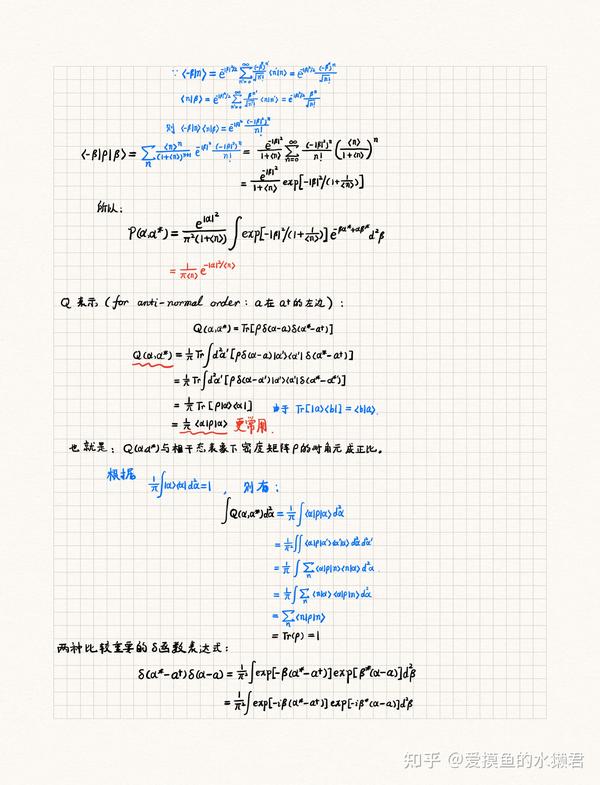 ∵ ⟨-β|n⟩ = e^{-|β|²/2} ∑_{n'=0}^{∞} (-β*)^{n'}/√n'! ⟨n'|n⟩ = e^{-|β|²/2} (-β*)^n/√n!
⟨n|β⟩ = e^{-|β|²/2} ∑_{n'=0}^{∞} β^{n'}/√n'! ⟨n|n'⟩ = e^{-|β|²/2} β^n/√n!
则 ⟨-β|n⟩⟨n|β⟩ = e^{-|β|²} (-|β|²)^n/n!
⟨-β|ρ|β⟩ = ∑_n ⟨n⟩^n/(1+⟨n⟩)^{n+1} e^{-|β|²} (-|β|²)^n/n! = e^{-|β|²}/(1+⟨n⟩) ∑_{n=0}^{∞} (-|β|²)^n/n! (⟨n⟩/(1+⟨n⟩))^n
= e^{-|β|²}/(1+⟨n⟩) exp[-|β|²/(1+1/⟨n⟩)]
所以：
P(α,α*) = e^{|α|²}/(π²(1+⟨n⟩)) ∫ exp[-|β|²/(1+1/⟨n⟩)] e^{-βα*+αβ*} d²β
= 1/(π⟨n⟩) e^{-|α|²/⟨n⟩}
Q 表示 (for anti-normal order: a 在 a† 的左边)：
Q(α,α*) = Tr[ρδ(α-a)δ(α*-a†)]
Q(α,α*) = 1/π Tr∫d²α'[ρδ(α-a)|α'⟩⟨α'|δ(α*-a†)]
= 1/π Tr∫d²α'[ρδ(α-α')|α'⟩⟨α'|δ(α*-α'*)]
= 1/π Tr[ρ|α⟩⟨α|] 由于 Tr[|a⟩⟨b|] = ⟨b|a⟩.
= 1/π ⟨α|ρ|α⟩ 更常用.
也就是：Q(α,α*)与相干态表象下密度矩阵ρ的对角元成正比。
根据 1/π∫|α⟩⟨α|d²α=1 ，则有：
∫Q(α,α*)d²α = 1/π ∫⟨α|ρ|α⟩d²α
= 1/π² ∬⟨α|ρ|α'⟩⟨α'|α⟩d²αd²α'
= 1/π ∫ ∑_n ⟨α|ρ|n⟩⟨n|α⟩d²α.
= 1/π ∫ ∑_n ⟨n|α⟩⟨α|ρ|n⟩d²α
= ∑_n ⟨n|ρ|n⟩
= Tr(ρ) = 1
两种比较重要的δ函数表达式：
δ(α*-a†)δ(α-a) = 1/π² ∫exp[-β(α*-a†)]exp[β*(α-a)]d²β
= 1/π² ∫exp[-iβ(α*-a†)]exp[-iβ*(α-a)]d²β
知乎 @爱摸鱼的水獭君